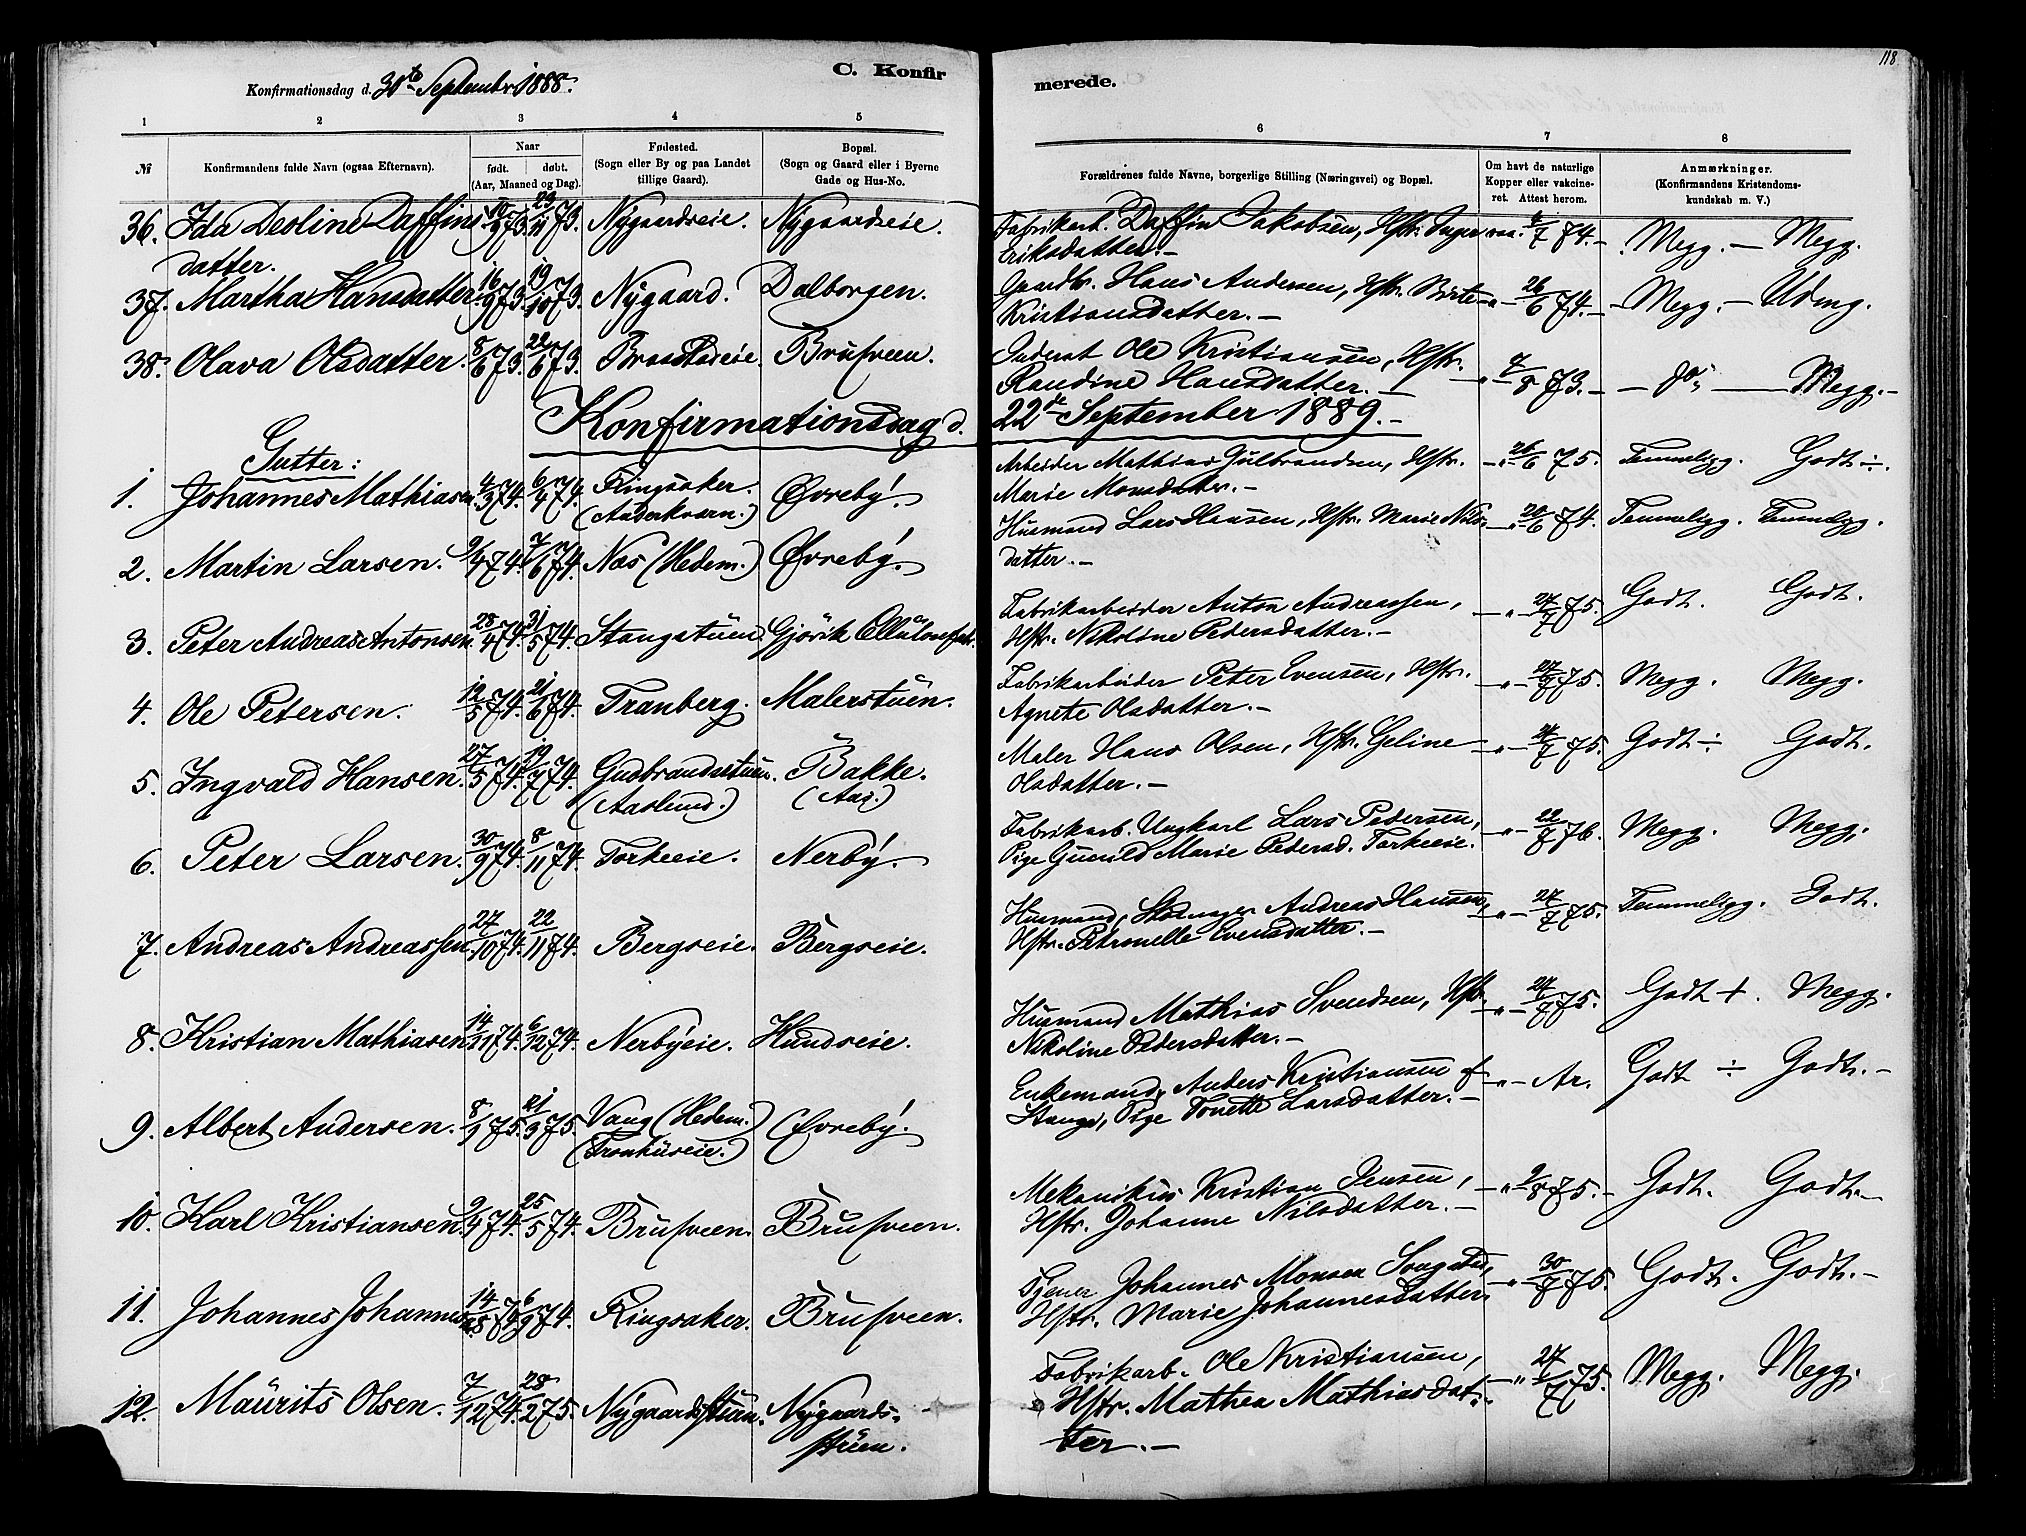 118
C. Konfirmerede.
Konfirmationsdag d. 30te September 1888.
1 2 3 4 5 6 7 8
№ Konfirmandens fulde Navn (ogsaa Efternavn). Naar født. døbt. (Aar, Maaned og Dag). Fødested. (Sogn eller By og paa Landet tillige Gaard). Bopæl. (Sogn og Gaard eller i Byerne Gade og Hus-No. Forældrenes fulde Navne, borgerlige Stilling (Næringsvei) og Bopæl. Om havt de naturlige Kopper eller vakcineret. Attest herom. Anmærkninger. (Konfirmandens Kristendomskundskab m. V.)
36. Ida Deoline Daffins 10/9 73. 23/11 73. Nygaardseie. Nygaardseie. Fabrikarb. Daffin Jakobsen, Hstr. Inger vac. 4/7 74.- Megg. - Megg.
datter. Eriksdatter.-
37. Martha Hansdatter. 16/9 73. 19/10 73. Nygaard. Dalborgen. Gaardbr. Hans Andersen, Hstr. Birte -"- 26/6 74.- -Megg. - Udmg.
Kristiansdatter.-
38. Olava Olsdatter. 8/6 73. 22/6 73. Braastadeie. Brusveen. Inderst Ole Kristiansen, Hstr.
Randine Hansdatter.- -"- 7/8 73.- -do- - Megg.-
Konfirmationsdag d. 22de September 1889.-
Gutter:
1. Johannes Mathiasen. 4/3 74. 6/4 74. Ringsaker. Øvreby. Arbeider Mathias Gulbrandsen, Hstr. -"- 26/6 75. Temmeligg. Godt ÷.
(Anderkværn.) Marie Monsdatter.-
2. Martin Larsen. 9/4 74. 7/6 74. Næs (Hedem.) Øvreby. Husmand Lars Hansen, Hstr. Marie Nils- -"- 20/6 74. Temmeligg. Temmeligg.
datter.-
3. Peter Andreas Antonsen. 28/4 74. 31/5 74. Stangstuen. Gjøvik Cellulosefabr. Fabrikarbeider Anton Andreassen, -"- 27/7 75. Godt. Godt.
Hstr. Nikoline Pedersdatter.-
4. Ole Petersen. 12/5 74. 21/6 74. Tranberg. Malerstuen. Fabrikarbeider Peter Evensen, Hstr. -"- 27/7 75. Megg. Megg.
Agnete Olsdatter.-
5. Ingvald Hansen. 27/5 74. 19/7 74. Gudbrandsstuen. Bakke. Maler Hans Olsen, Hstr. Geline -"- 27/7 75. Godt ÷ Godt.
(Aaslund.) (Aas.) Olsdatter.-
6. Peter Larsen. 30/9 74. 8/11 74. Torkeeie. Nerby. Fabrikarb. Ungkarl Lars Pedersen, -"- 22/7 76. Megg. Megg.
Pige Gunild Marie Pedersd. Torkeeie.
7. Andreas Andreassen 27/10 74. 22/11 74. Bergseie. Bergseie. Husmand, Skomager Andreas Hansen, -"- 27/7 75. Temmeligg. Godt.
Hstr. Petronelle Evensdatter.-
8. Kristian Mathiasen 14/10 74. 6/12 74. Nerbyeie. Hundseie. Husmand Mathias Svendsen, Hstr. -"- 27/7 75. Godt +. Megg.
Nikoline Pedersdatter.-
9. Albert Andersen. 8/1 75. 21/3 75. Vang (Hedem.) Øvreby. Enkemand Anders Kristiansen af -"- Ar. Godt ÷ Godt.-
(Tronhuseie.) Stange, Pige Tonette Larsdatter.-
10. Karl Kristiansen. 9/4 74. 25/5 74. Brusveen. Brusveen. Mekanikus Kristian Jensen, -"- 9/8 75.- Godt. Godt.-
Hstr. Johanne Nilsdatter.-
11. Johannes Johannes 14/8 74. 6/9 74. Ringsaker. Brusveen. Tjener Johannes Monsen Songstad, -"- 30/7 75. Godt. Godt.-
Hstr. Marie Johannesdatter.
12. Maurits Olsen. 7/12 74. 28/2 75. Nygaardsstuen. Nygaards- Fabrikarb. Ole Kristiansen, -"- 27/7 75. Megg. Megg.
stuen. Hstr. Mathea Mathiasdat-
ter.-